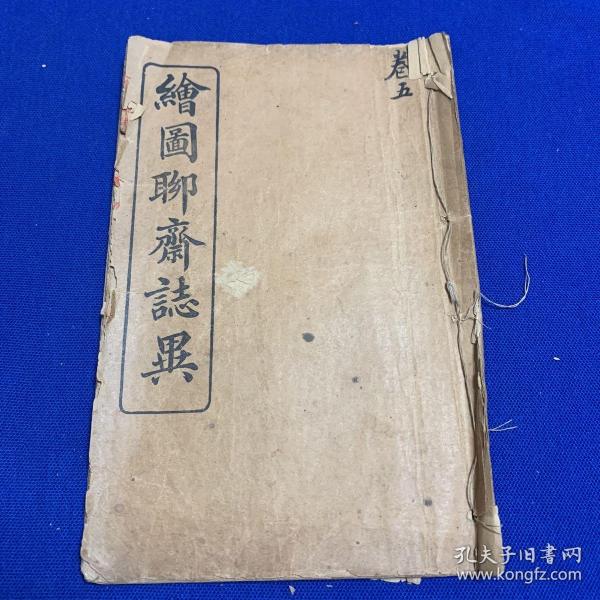 卷五
繪圖聊齋誌異
孔夫子旧书网
www.kongfz.com